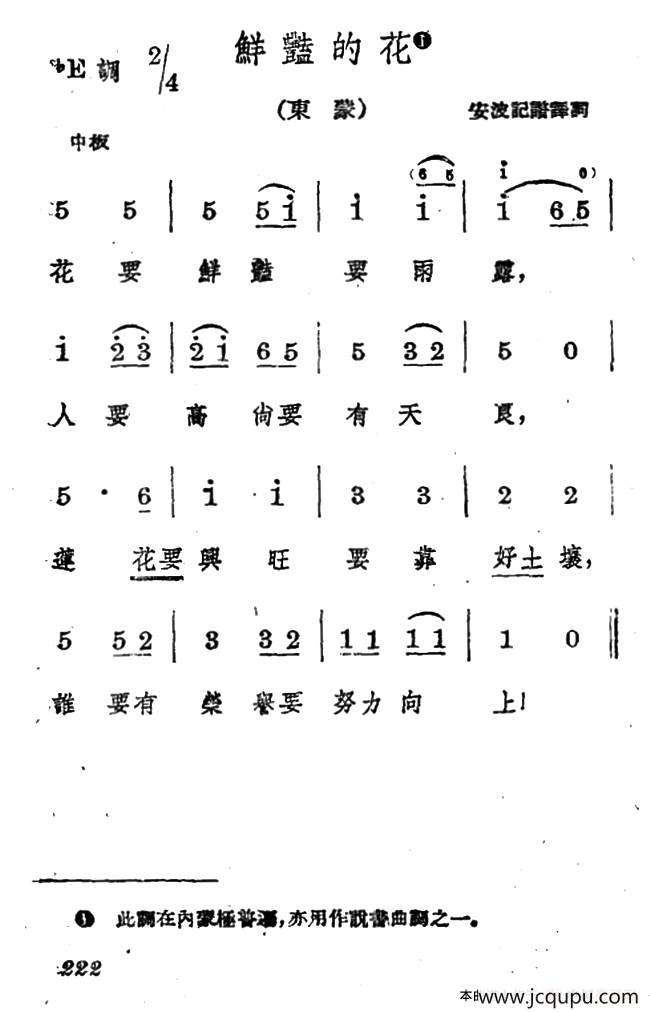 鮮豔的花❶
♭E調 2/4
(東蒙) 安波記譜譯詞
中板
(6 5 i 0)
5 5 | 5 5 i | i i | i 6 5 |
花要鮮豔要雨露,
i 2 3 | 2 i 6 5 | 5 3 2 | 5 0 |
人要高尚要有天良,
5 · 6 | i i | 3 3 | 2 2 |
蓮花要興旺要靠好土壤,
5 5 2 | 3 3 2 | 1 1 1 1 | 1 0 ‖
誰要有榮譽要努力向上!
❶ 此調在內蒙極普遍,亦用作說書曲調之一。
222
www.jcqupu.com